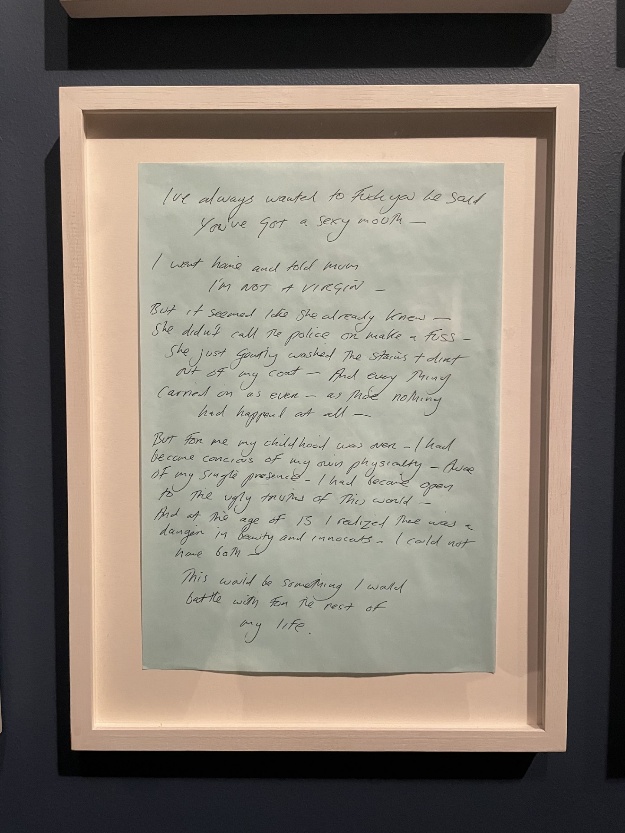 I've always wanted to Fuck you he said
You've got a sexy mouth —
I went home and told mum
I'M NOT A VIRGIN —
But it seemed like she already knew —
She didn't call the police or make a fuss —
She just gently washed the stains + dirt
out of my coat — And every thing
carried on as ever — as thoe nothing
had happend at all —
But for me my childhood was over — I had
become concious of my own physicality — Awae
of my single presence — I had become open
to the ugly truths of this world —
And at the age of 13 I realized there was a
danger in beauty and innocents — I could not
have both —
This would be something I would
battle with for the rest of
my life.